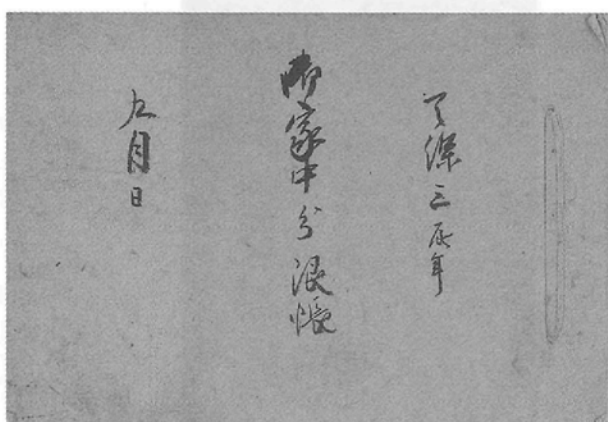 天保三辰年
御家中分限帳
九月日